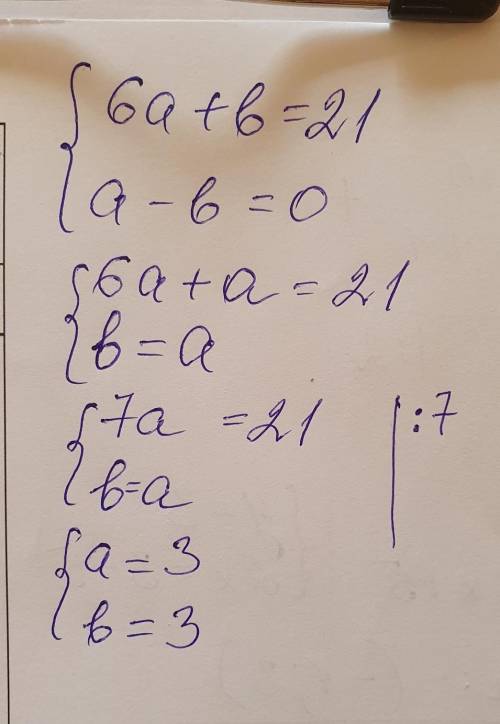 6a + b = 21
a - b = 0
6a + a = 21
b = a
7a = 21 | : 7
b = a
a = 3
b = 3